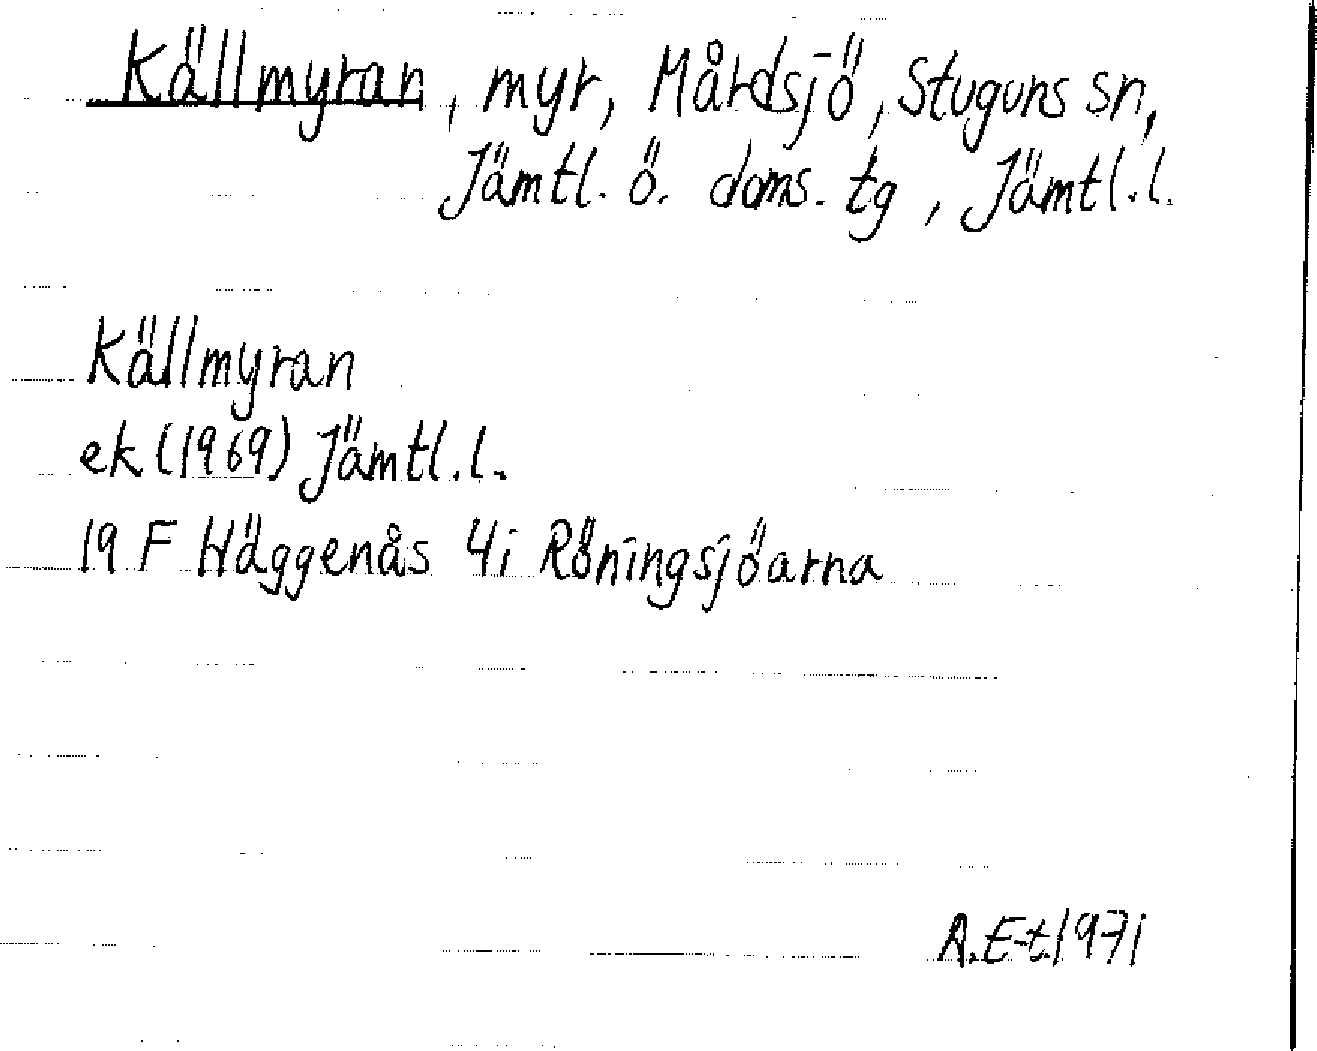 Källmyran, myr, Mårdsjö, Stuguns sn,
Jämtl. ö. doms. tg, Jämtl. l.
Källmyran
ek (1969) Jämtl. l.
19 F Häggenås 4i Röningsjöarna
A. E-t. 1971